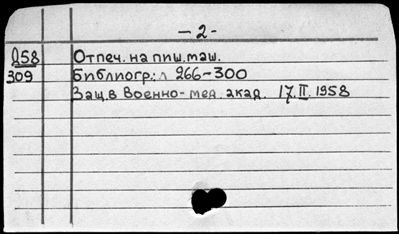 - 2 -
Д58 Отпеч. на пиш. маш.
309 Библиогр.: л 266-300
Защ. в Военно-мед. акад. 17.II.1958